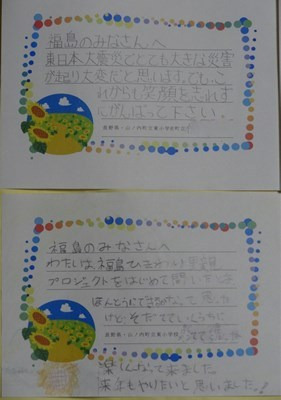 福島のみなさんへ
東日本大震災でとても大きな災害
が起り大変だと思います。でも、こ
れからも笑顔を忘れず
にがんばって下さい。
長野県・山ノ内町立東小学校
福島のみなさんへ
わたしは、福島ひまわり里親
プロジェクトをはじめて聞いたときは
ほんとうにできるかなって思った
けど、そだてていくうちに
長野県・山ノ内町立東小学校
楽しくなって来ました
来年もやりたいと思いました!